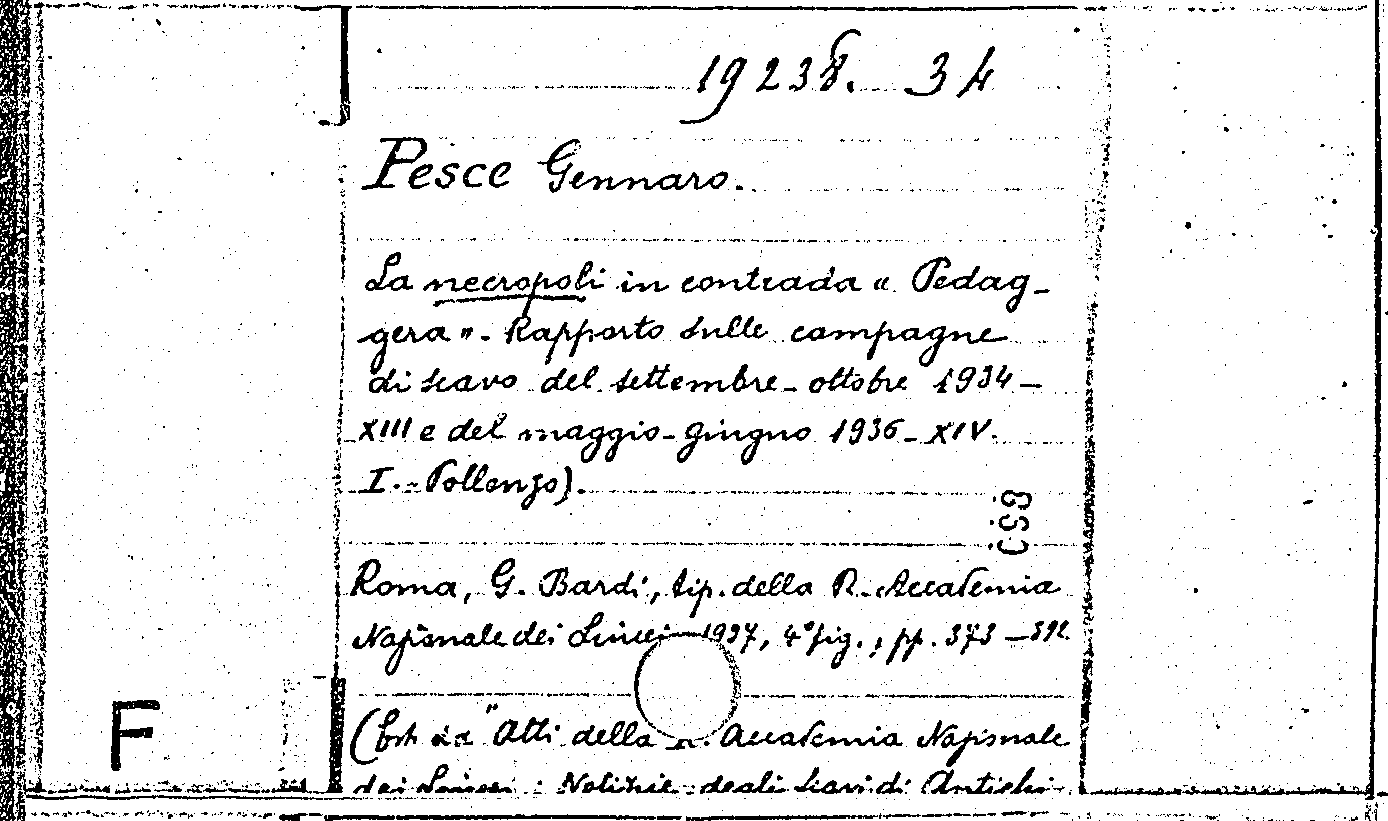 19238. 34
Pesce Gennaro.
La necropoli in contrada « Pedag-
gera ». Rapporto sulle campagne
di scavo del settembre - ottobre 1934 -
XIII e del maggio - giugno 1936 - XIV.
I. - Pollenzo).
Roma, G. Bardi, tip. della R. Accademia
Nazionale dei Lincei 1937, 4° fig., pp. 373 - 392
(Estr. da "Atti della R. Accademia Nazionale
dei Lincei : Notizie degli Scavi di Antichi-
F